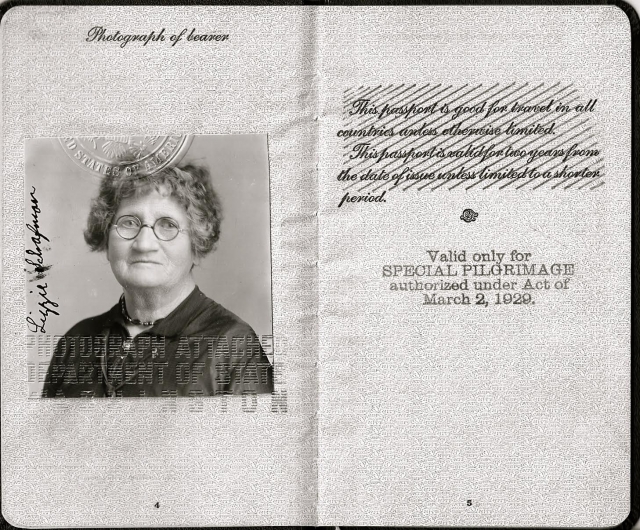 Photograph of bearer
D STATES OF AMERIC
Lizzie
PHOTOGRAPH ATTACHED
DEPARTMENT OF STATE
WASHINGTON
4
This passport is good for travel in all
countries unless otherwise limited.
This passport is valid for two years from
the date of issue unless limited to a shorter
period.
Valid only for
SPECIAL PILGRIMAGE
authorized under Act of
March 2, 1929.
5